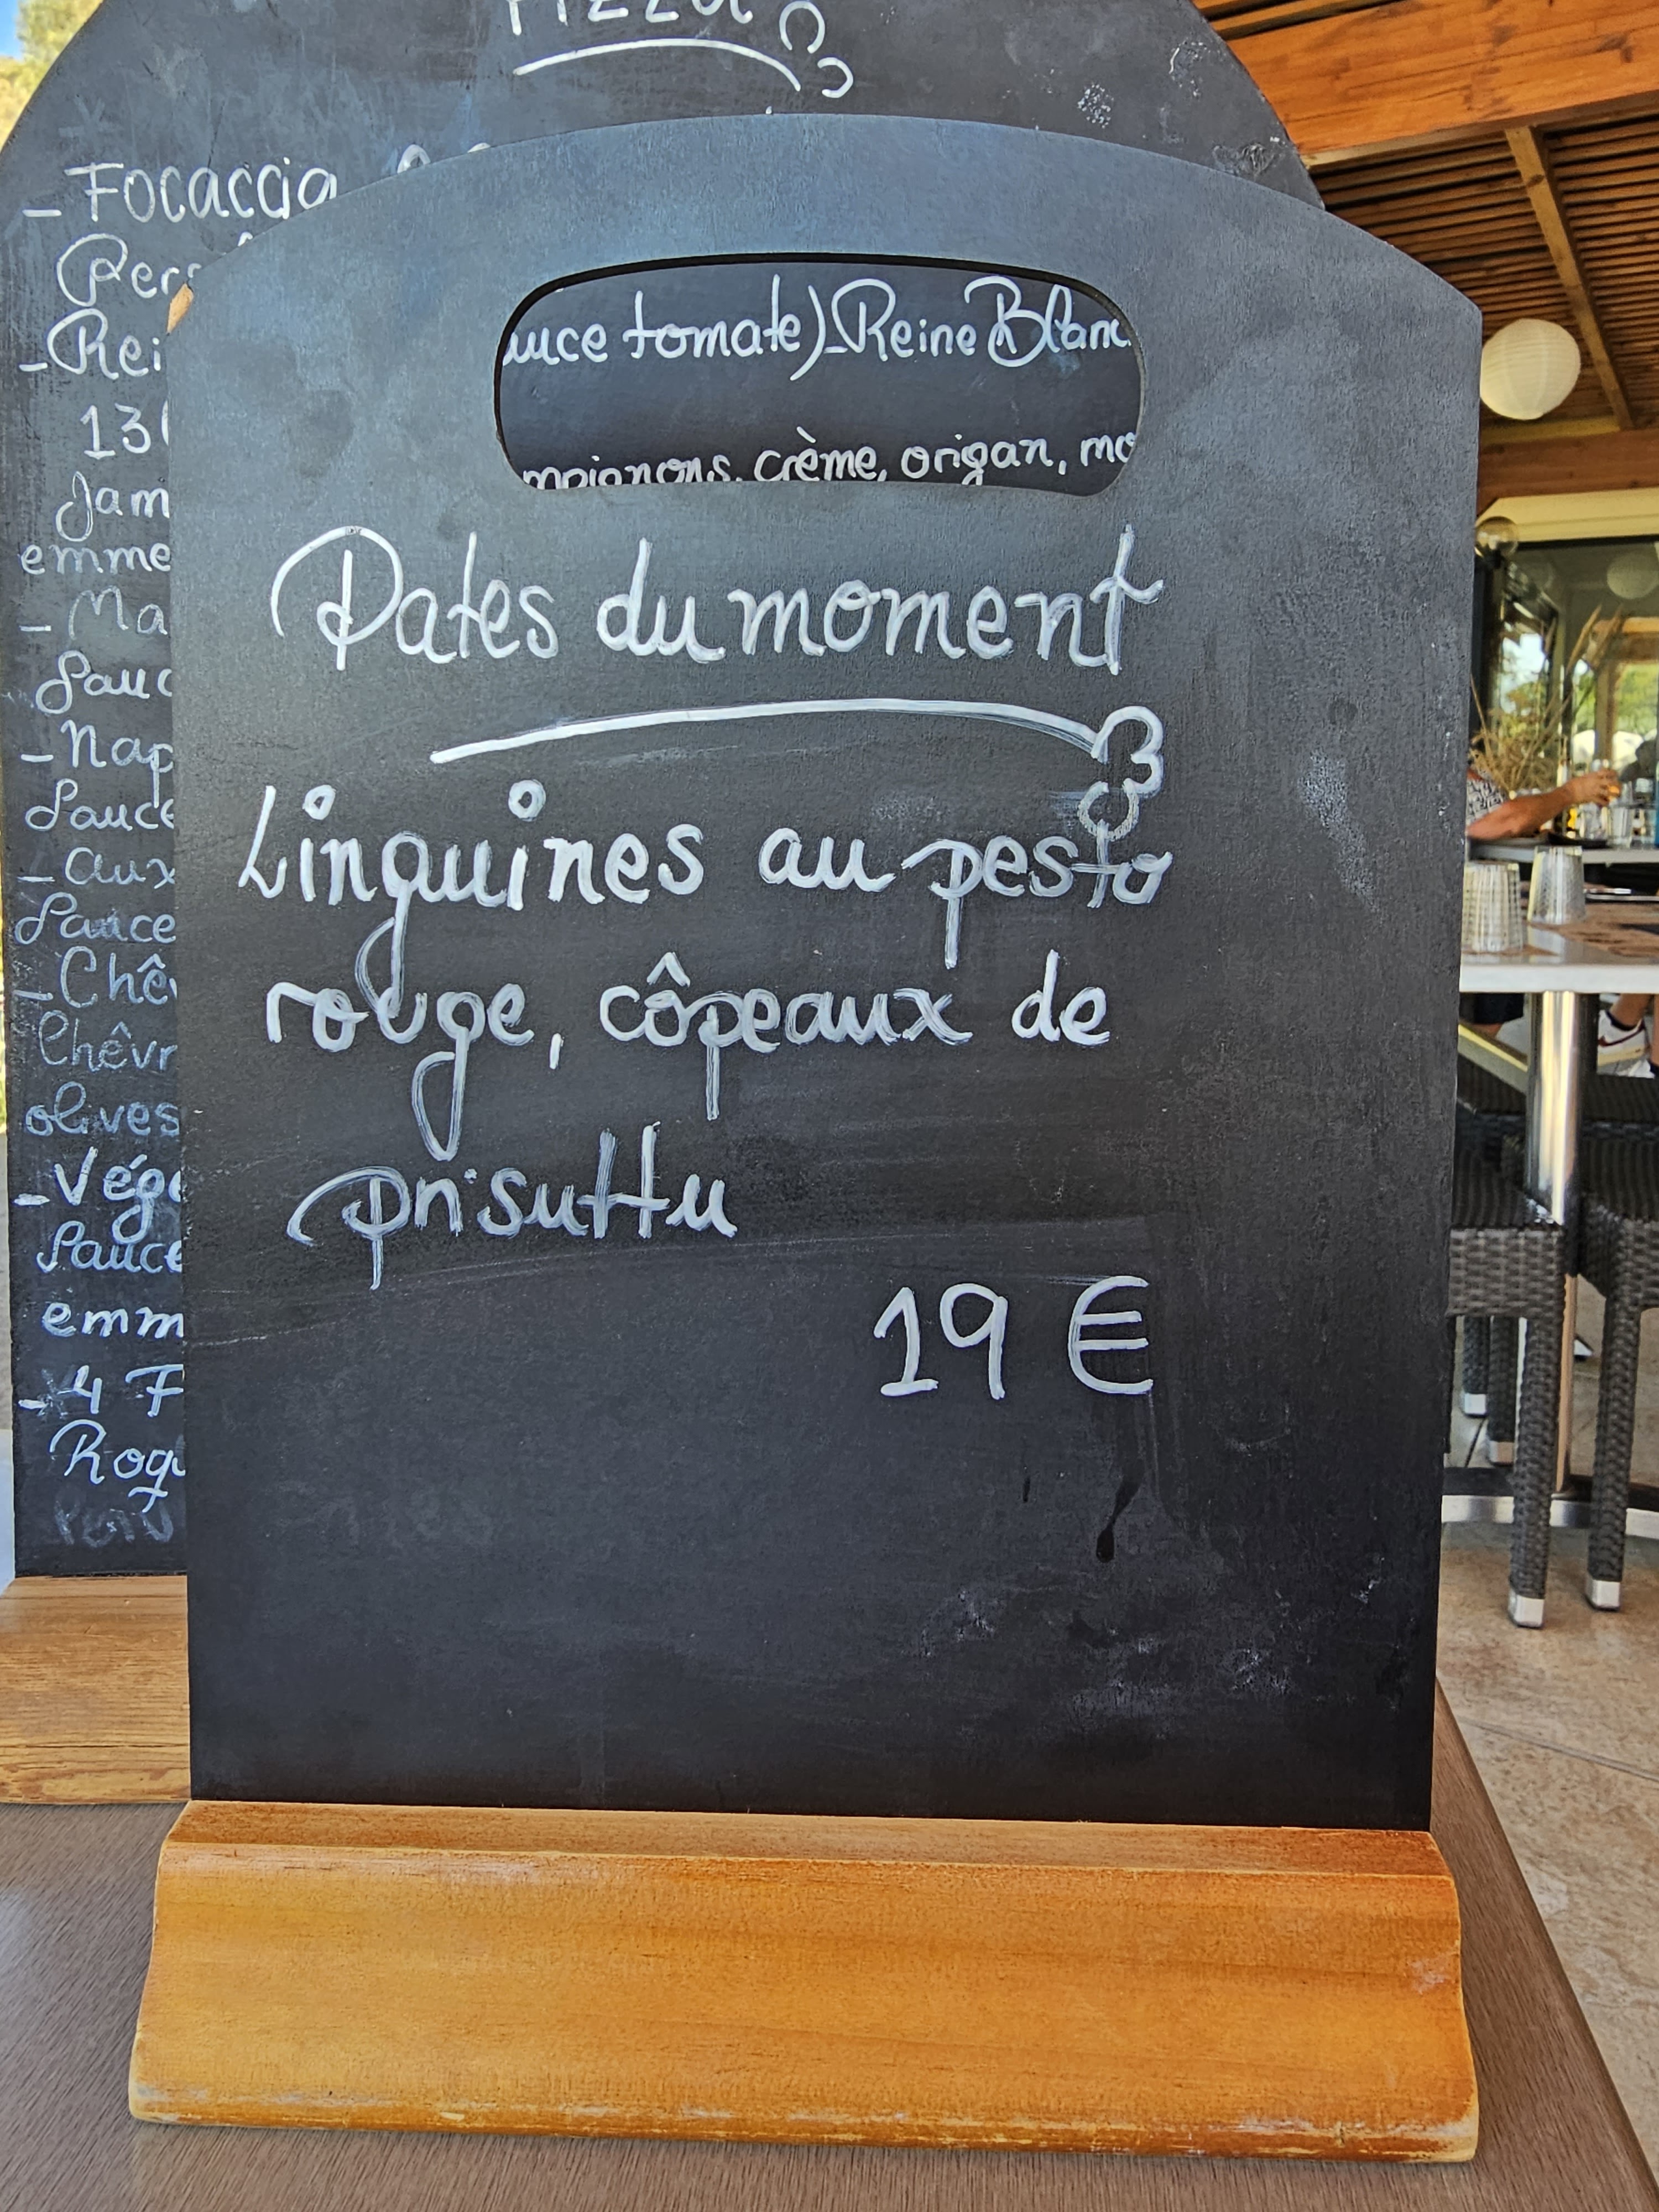 Pizza
- Focaccia
- Rei
Jam
emme
- Ma
Sauc
- Nap
Sauce
- aux
Sauce
- Chê
Chêvr
olives
- Végé
Sauce
emm
- 4 F
Roqu
uce tomate) - Reine Blanc
mpignons, crème, origan, mo
Pates du moment
Linguines au pesto
rouge, côpeaux de
prisuttu
19 €